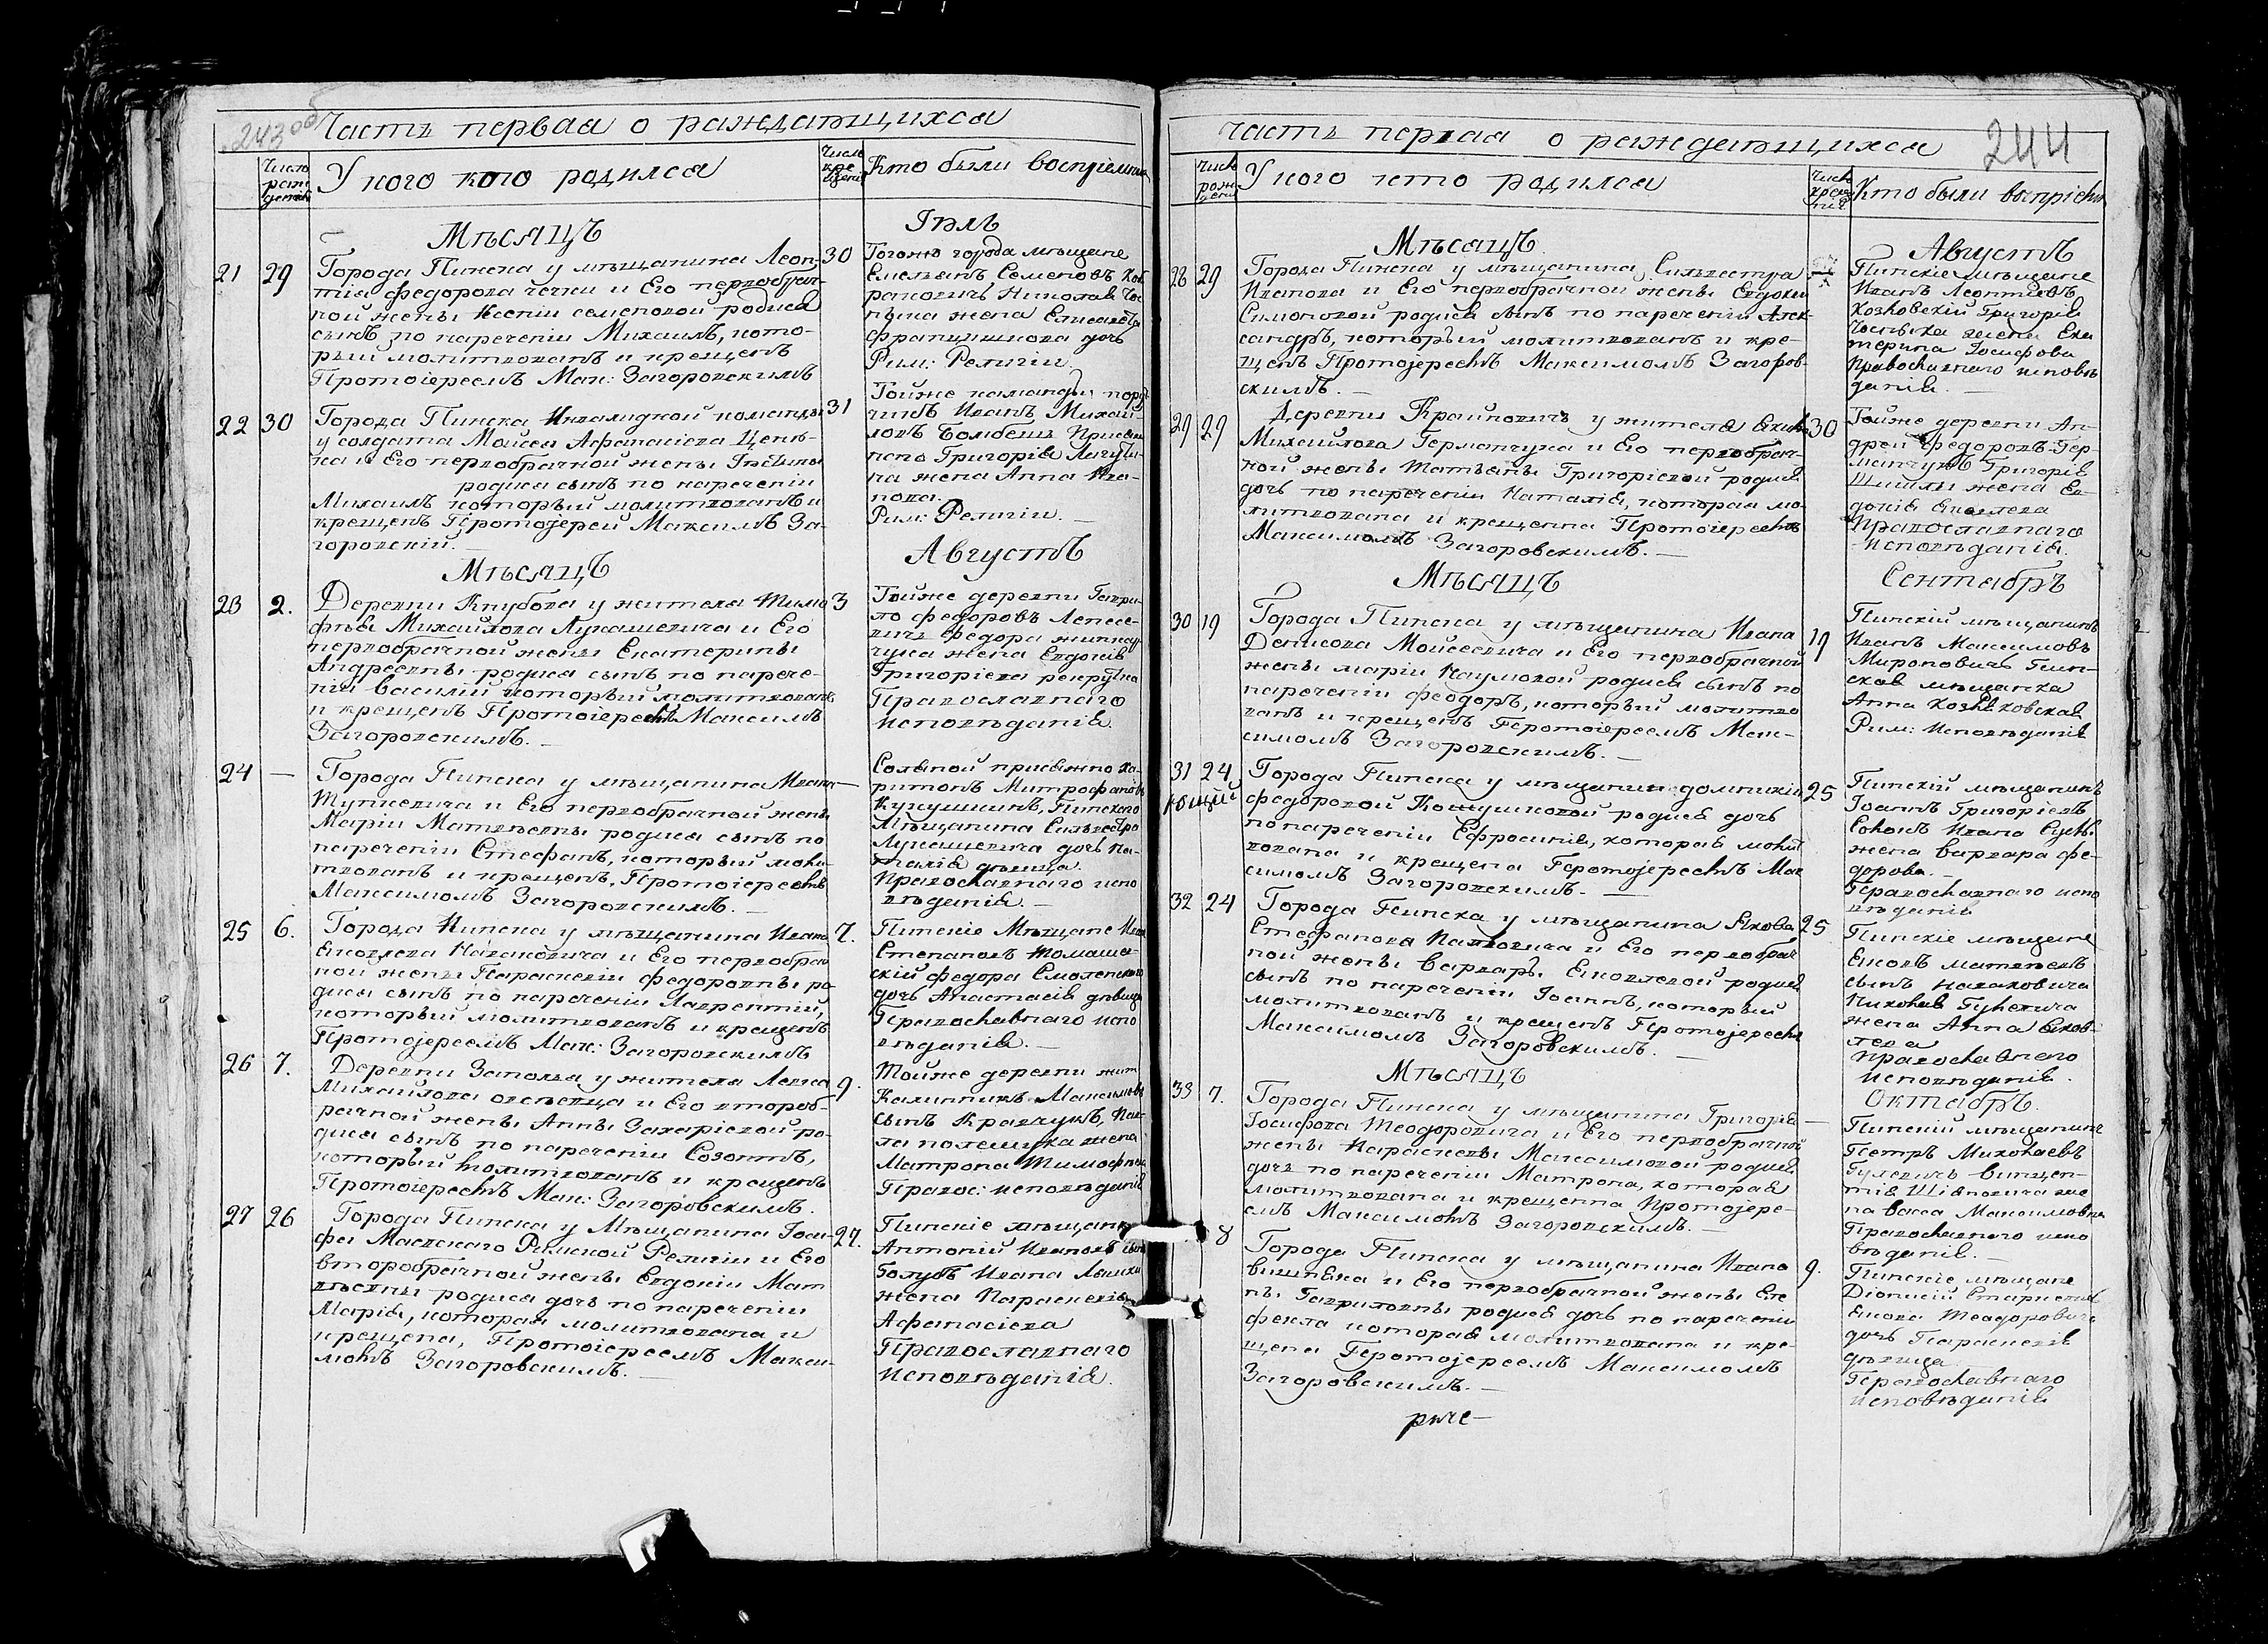 243 об
Часть первая о раждающихся
Число рожденія
У кого кто родился
Число крещенія
Кто были воспріемники
Мѣсяцъ
Іюль
21 29
Города Пинска у мѣщанина Леон-
тія Федорова и Его первобрач-
ной жены Ксеніи Семеновой родися
сынъ по нареченіи Михаилъ, кото-
рый молитвованъ и крещенъ
Протоіереемъ Мак: Загоровскимъ
30
Тогожъ города мѣщане
Емельянъ Семеновъ
Николая
жена Елисавета
Францишкова дочь
Рим: Религіи
22 30
Города Пинска Инвалидной команды
у солдата Мойсея Афанасіева
и Его первобрачной жены Іустины
родися сынъ по нареченіи
Михаилъ который молитвованъ и
крещенъ Протоіерей Максимъ За-
горовскій.
31
Тойже команды
Иванъ Михай-
ловъ
Григорія
жена Анна Ива-
нова.
Рим: Религіи.
Мѣсяцъ
Августъ
23 2.
Деревни Кнубова у жителя Тимо
фѣя Михайлова Лукашевича и Его
первобрачной жены Екатерины
Андреевны родися сынъ по нарече-
ніи Василій который молитвованъ
и крещенъ Протоіереемъ Максимъ
Загоровскимъ.
3
Тойже деревни Гаври-
ло Федоровъ
Федора
жена Евдокія
Григоріева
Православнаго
исповѣданія.
24 —
Города Пинска у мѣщанина Ивана
и Его первобрачной жены
Маріи Матвѣевны родися сынъ по
нареченіи Стефанъ, который моли-
твованъ и крещенъ, Протоіереемъ
Максимомъ Загоровскимъ.
—
Соляной Ха-
ритонъ Митрофановъ
Кукушкинъ, Пинскаго
Мѣщанина Сильвестра
Лукашевича дочь На-
талія дѣвица.
Православнаго испо
вѣданія.
25 6.
Города Пинска у мѣщанина Ивана
Яковлева и Его первобрач
ной жены Параскевіи Федоровны ро-
дися сынъ по нареченіи Лаврентій,
который молитвованъ и крещенъ
Протоіереемъ Мак: Загоровскимъ
7.
Пинскіе Мѣщане Иванъ
Степановъ Томаше-
скій Федора Смоленскаго
дочь Анастасія дѣвица
Православнаго испо
вѣданія.
26 7.
Деревни Заполья у жителя Леона
Михайлова и Его второб-
рачной жены Анны Захаріевой ро-
дися сынъ по нареченіи Созонтъ,
который молитвованъ и крещенъ
Протоіереемъ Мак: Загоровскимъ.
9.
Тойже деревни жит
Калинникъ Максимовъ
сынъ Кравчукъ, Пав-
ла Полещука жена
Матрона Тимофѣева
Правос: исповѣданія
27 26
Города Пинска у Мѣщанина Іоси-
фа Маевскаго Римской Религіи и Его
второбрачной жены Евдокіи Мат
вѣевны родися дочь по нареченіи
Марія, которая молитвована и
крещена, Протоіереемъ Макси-
момъ Загоровскимъ.
27.
Пинскіе мѣщане
Антоній Ивановъ сынъ
Голубъ Ивана
жена Параскевія
Афанасіева
Православнаго
исповѣданія.
244
Часть первая о раждающихся
Число рожденія
У кого кто родился
Число крещенія
Кто были воспріемн
Мѣсяцъ
Августъ
28 29
Города Пинска у мѣщанина Сильвестра
Иванова и Его первобрачной жены Евдокіи
Симоновой родися сынъ по нареченіи Алек-
сандръ, который молитвованъ и кре-
щенъ Протоіереемъ Максимомъ Загоров-
скимъ.
Пинскіе мѣщане
Иванъ Леонтіевъ
Козловскій Григорія
жена Ека
терина Іосифова
Православнаго исповѣ
данія.
29 29
Деревни у жителя Якима
Михайлова Германчука и Его первобрач-
ной жены Татьяны Григоріевой родися
дочь по нареченіи Наталія, которая мо-
литвована и крещенна Протоіереемъ
Максимомъ Загоровскимъ.
30
Тойже деревни Ан-
дрей Федоровъ Гер-
манчукъ Григорія
жена Ев-
докія Яковлева
Православнаго
исповѣданія.
Мѣсяцъ
Сентябръ
30 19
Города Пинска у мѣщанина Ивана
Денисова Мойсеевича и Его первобрачной
жены Маріи Наумовой родися сынъ по
нареченіи Феодоръ, который молитво
ванъ и крещенъ Протоіереемъ Мак-
симомъ Загоровскимъ.
19
Пинскій мѣщанинъ
Иванъ Максимовъ
Мироновичъ Пин-
ская мѣщанка
Анна Козляковская
Рим: Исповѣданія
31 24
Города Пинска у мѣщанки Домникіи
Федоровой родися дочь
по нареченіи Ефросинія, которая молит
вована и крещена Протоіереемъ Мак
симомъ Загоровскимъ.
25
Пинскій мѣщанинъ
Іоаннъ Григоріевъ
Соколъ Ивана
жена Варвара Фе-
дорова.
Православнаго испо
вѣданія
32 24
Города Пинска у мѣщанина Якова
Стефанова и Его первобрач
ной жены Варвары Яковлевой родися
сынъ по нареченіи Іоаннъ, который
молитвованъ и крещенъ Протоіереемъ
Максимомъ Загоровскимъ.
25
Пинскіе мѣщане
Яковъ Матвѣевъ
сынъ
Николая Гулевича
жена Анна Яков-
лева
Православнаго
исповѣданія.
Мѣсяцъ
Октябръ.
33 7.
Города Пинска у мѣщанина Григорія
Іосифова Теодоровича и Его первобрачной
жены Параскевы Максимовой родися
дочь по нареченіи Матрона, которая
молитвована и крещенна Протоіере-
емъ Максимомъ Загоровскимъ.
—
Пинскій мѣщанинъ
Петръ Михолаевъ
Гулевичъ Винцен-
тія же
на Васса Максимовна
Православнаго испо
вѣданія.
8
Города Пинска у мѣщанина Ивана
и Его первобрачной жены Еле
ны Гавриловны родися дочь по нареченіи
Фекла которая молитвована и кре-
щена Протоіереемъ Максимомъ
Загоровскимъ.
9.
Пинскіе мѣщане
Діонисій
Якова Теодоровича
дочь Параскевія
дѣвица
Православнаго
исповѣданія